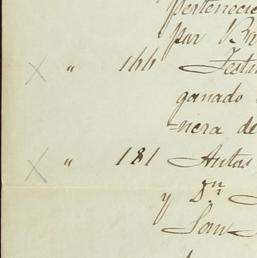 pertenecie
por Br
X " 166 Testi
ganado
=nera de
X " 181 Autos
y Dn
San